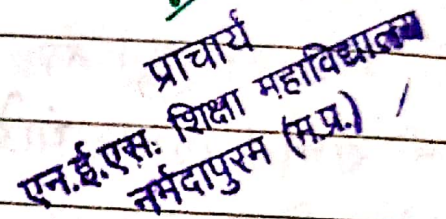 प्राचार्य
एन.ई.एस. शिक्षा महाविद्यालय
नर्मदापुरम (म.प्र.)